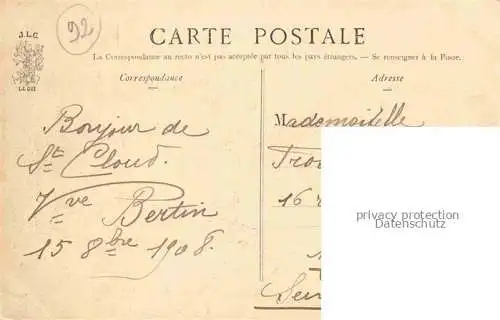 J.L.C.
92
CARTE POSTALE
La Correspondance au recto n'est pas acceptée par tous les pays étrangers. — Se renseigner à la Poste.
Correspondance
Adresse
Bonjour de
St Cloud.
Vve Bertin
15 8bre 1908.
Mademoiselle
16
privacy protection
Datenschutz